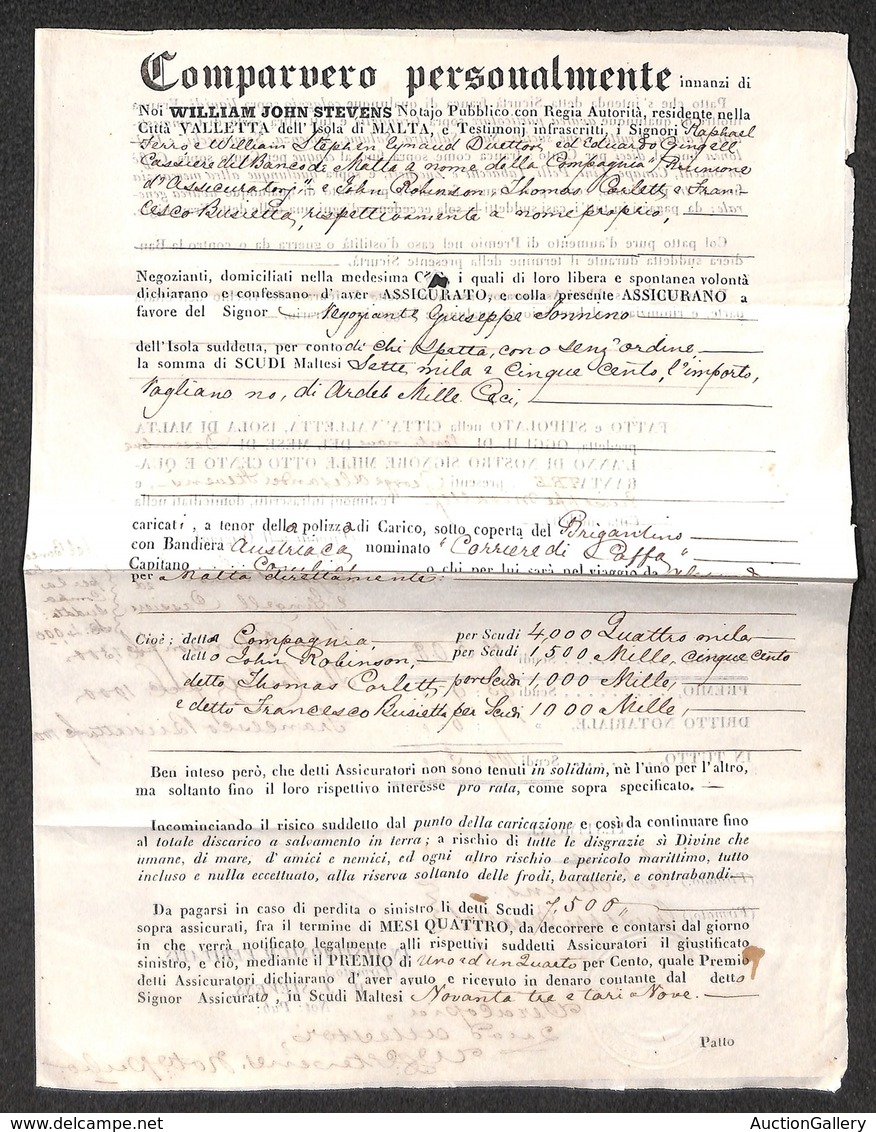 Comparvero personalmente innanzi di
Noi WILLIAM JOHN STEVENS Notajo Pubblico con Regia Autorità, residente nella
Città VALLETTA dell'Isola di MALTA, e Testimonj infrascritti, i Signori Raphael
Ferro e William Stephen Eynaud Direttori, ed Eduardo Gingell
Cassiere del Banco de Malta a nome della Compagnia "Riunione
d'Assicuratori" e John Robinson, Thomas Corlett, e Fran-
cesco Busietta, rispettivamente a nome proprio,
Negozianti, domiciliati nella medesima i quali di loro libera e spontanea volontà
dichiarano e confessano d'aver ASSICURATO, e colla presente ASSICURANO a
favore del Signor Negoziante Giuseppe Sonnino
dell'Isola suddetta, per conto di chi Spetta, con o senz'ordine,
la somma di SCUDI Maltesi Sette mila e Cinque Cento, l'importo,
Vagliano no, di Ardeb Mille Ceci,
caricati, a tenor della polizza di Carico, sotto coperta del Brigantino
con Bandiera Austriaca nominato "Corriere di Jaffa"
Capitano o chi per lui sarà nel viaggio da
per Malta direttamente.
Cioè; detta Compagnia, per Scudi 4,000 Quattro mila
detto John Robinson, per Scudi 1500 Mille, cinque cento
detto Thomas Corlett, per Scudi 1,000 Mille,
e detto Francesco Busietta per Scudi 1000 Mille,
Ben inteso però, che detti Assicuratori non sono tenuti in solidum, nè l'uno per l'altro,
ma soltanto fino il loro rispettivo interesse pro rata, come sopra specificato.
Incominciando il risico suddetto dal punto della caricazione e così da continuare fino
al totale discarico a salvamento in terra; a rischio di tutte le disgrazie sì Divine che
umane, di mare, d'amici e nemici, ed ogni altro rischio e pericolo marittimo, tutto
incluso e nulla eccettuato, alla riserva soltanto delle frodi, baratterie, e contrabandi.
Da pagarsi in caso di perdita o sinistro li detti Scudi 7,500,,
sopra assicurati, fra il termine di MESI QUATTRO, da decorrere e contarsi dal giorno
in che verrà notificato legalmente alli rispettivi suddetti Assicuratori il giustificato
sinistro, e ciò, mediante il PREMIO di Uno ed un Quarto per Cento, quale Premio
detti Assicuratori dichiarano d'aver avuto e ricevuto in denaro contante dal detto
Signor Assicurato, in Scudi Maltesi Novanta tre e tari Nove.
Patto
AuctionGallery